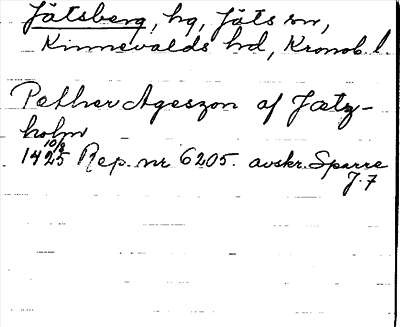 Jätsberg, hg, Jäts sn,
Kinnevalds hd, Kronob. l.
Pether Ageszon af Jætz-
holm
10/8
1425 Rep. nr 6205. avskr. Sparre
J. 7